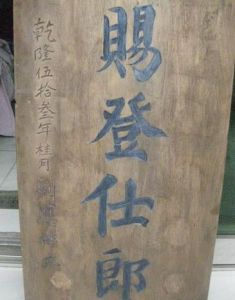 賜登仕郎
乾隆伍拾叁年桂月